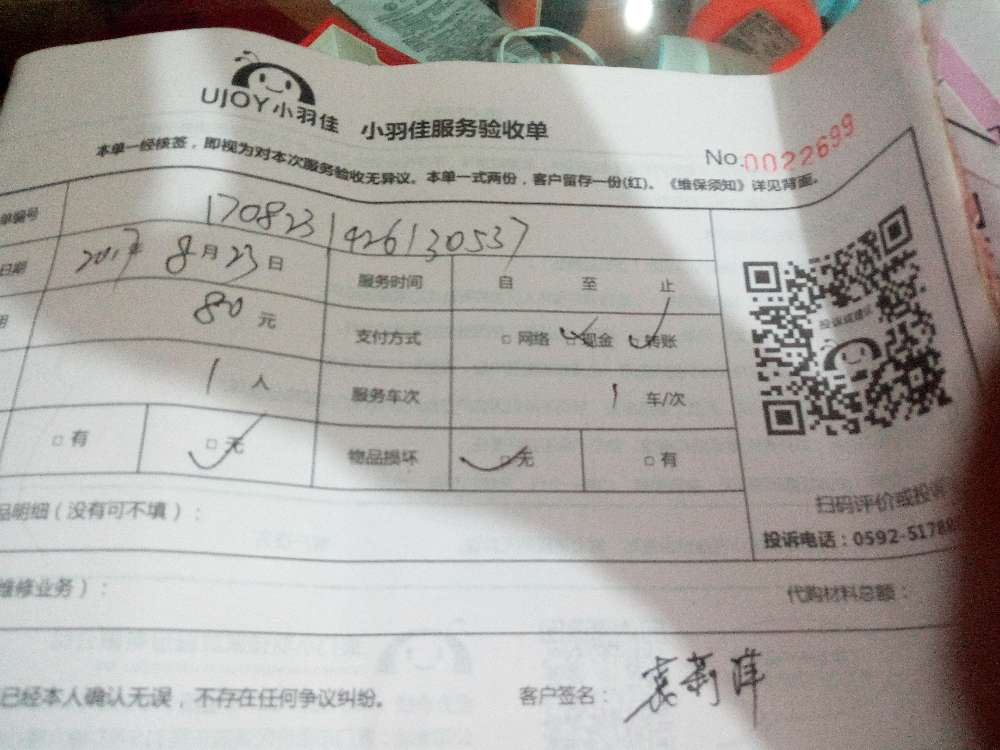 UJOY小羽佳 小羽佳服务验收单
No.0022699
本单一经核签，即视为对本次服务验收无异议。本单一式两份，客户留存一份(红)。《维保须知》详见背面。
单编号 1708231426130537
日期 2017年8月23日 服务时间 自 至 止
用 80元 支付方式 □网络 □现金 □转账
1人 服务车次 1 车/次
□有 □无 物品损坏 □无 □有
投诉或建议
扫码评价或投诉
品明细（没有可不填）：
投诉电话：0592-5178
维修业务）： 代购材料总额：
已经本人确认无误，不存在任何争议纠纷。 客户签名：